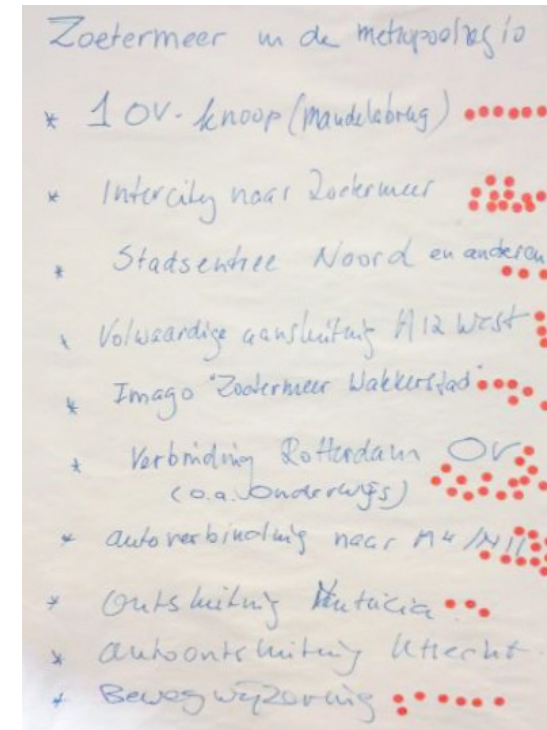 Zoetermeer in de metropoolregio
* 1 OV-knoop (Mandelabrug)
* Intercity naar Zoetermeer
* Stadsentree Noord en anderen
* Volwaardige aansluiting A12 West
* Imago "Zoetermeer Wakkerstad"
* Verbinding Rotterdam OV
(o.a. onderwijs)
* autoverbinding naar A4/N11
* Ontsluiting Nutricia
* autoontsluiting Utrecht
* Bewegwijzering